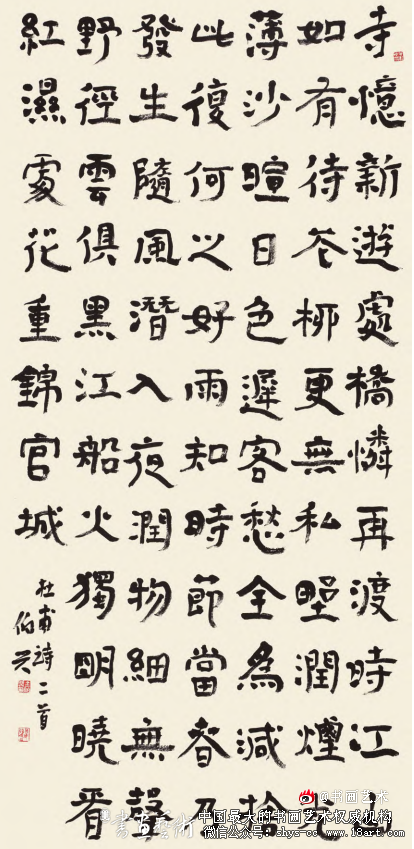 寺憶新遊處橋憐再渡時江山
如有待花柳更無私野潤煙光
薄沙暄日色遲客愁全為減捨
此復何之好雨知時節當春乃
發生隨風潛入夜潤物細無聲
野徑雲俱黑江船火獨明曉看
紅濕處花重錦官城
杜甫詩二首
伯
@书画艺术
書畫藝術
中国最大的书画艺术权威机构
微信公众号:shys-cc www.18art.com